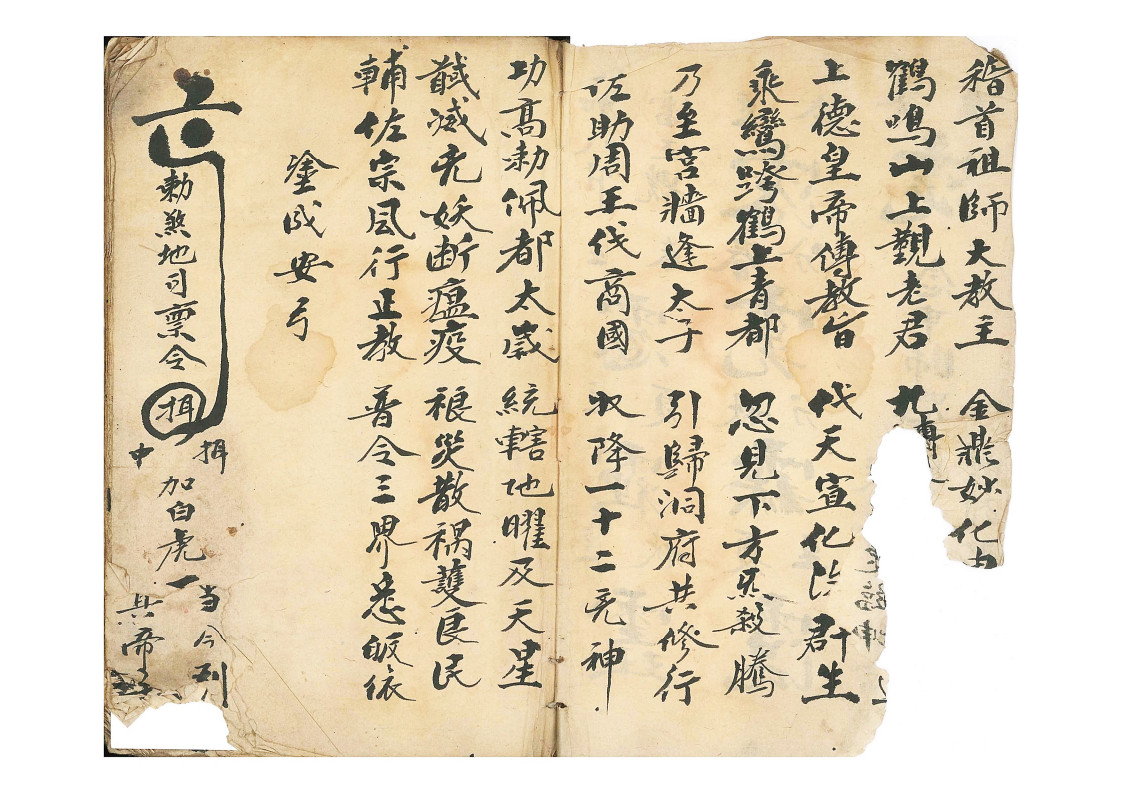 稽首祖師大教主 金鼎妙化
鶴鳴山上觀老君 九
上德皇帝傳教旨 伐天宣化治群生
乘鸞跨鶴上青都 忽見下方炁殺騰
乃至宮牆逢太子 引歸洞府共修行
佐助周王伐商國 收降一十二兇神
功高勅佩都太歲 統轄地曜及天星
馘滅兇妖断瘟疫 禳災散禍護良民
輔佐宗風行正教 普令三界悉皈依
塗成安弓
勅煞地司票令
揖
揖
中
加白虎一
当今
兵帝